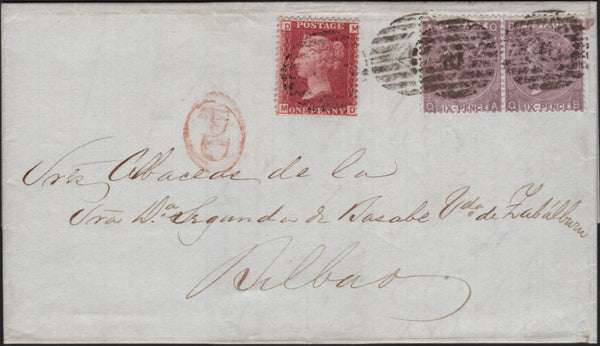 D POSTAGE M
M ONE PENNY D
C
Q SIX-PENCE A Q SIX-PENCE B
PD
Sres Albaceas de la
Sra Da. Segunda de Basabe Vda. de Zabálburu
Bilbao.